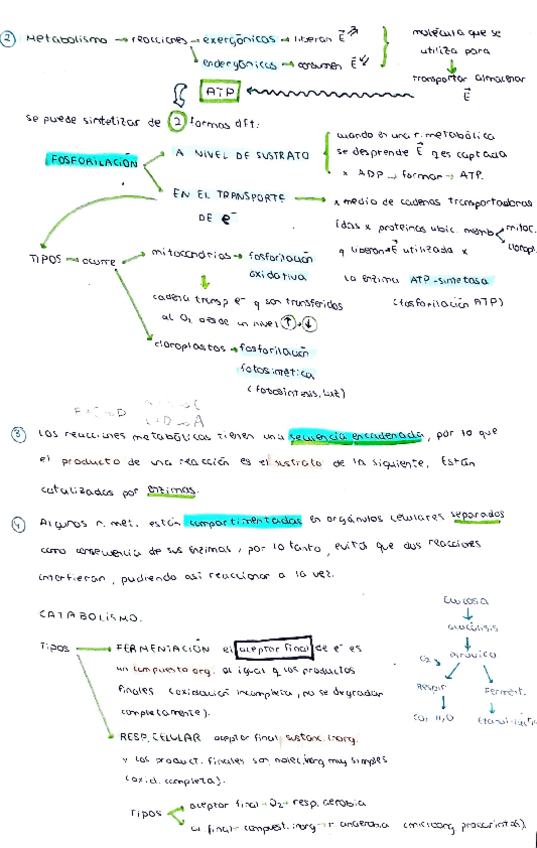 ② Metabolismo → reacciones → exergónicas → liberan E
endergónicas → consumen E
molécula que se
utiliza para
transportar almacenar
E
ATP
se puede sintetizar de 2 formas dft:
FOSFORILACIÓN
A NIVEL DE SUSTRATO
cuando en una r. metabólica
se desprende E q es captada
x ADP → formar → ATP.
EN EL TRANSPORTE
DE e⁻
x medio de cadenas transportadoras
idas x proteínas ubic. memb mitoc.
cloropl.
q liberan E utilizada x
la enzima ATP-sintetasa
(fosforilación ATP)
TIPOS → ocurre
mitocondrias → fosforilación
oxidativa
cadena transp e⁻ q son transferidos
al O₂ desde un nivel ↑ → ↓
cloroplastos → fosforilación
fotosintética
(fotosíntesis, luz)
③ Las reacciones metabólicas tienen una secuencia encadenada, por lo que
el producto de una reacción es el sustrato de la siguiente. Están
catalizadas por enzimas.
④ Algunas r. met. están compartimentadas en orgánulos celulares separados
como consecuencia de sus enzimas, por lo tanto, evita que dos reacciones
interfieran, pudiendo así reaccionar a la vez.
CATABOLISMO.
Tipos
FERMENTACIÓN el aceptor final de e⁻ es
un compuesto org. al igual q los productos
finales (oxidación incompleta, no se degradan
completamente).
RESP. CELULAR aceptor final sustanc. inorg.
y los product. finales son moléc. inorg muy simples
(oxid. completa).
Tipos
aceptor final → O₂ → resp. aerobia
final → compuest. inorg → r anaerobia (microorg procariotas).
Glucosa
Glucólisis
O₂
pirúvico
Respir
Ferment.
CO₂ H₂O